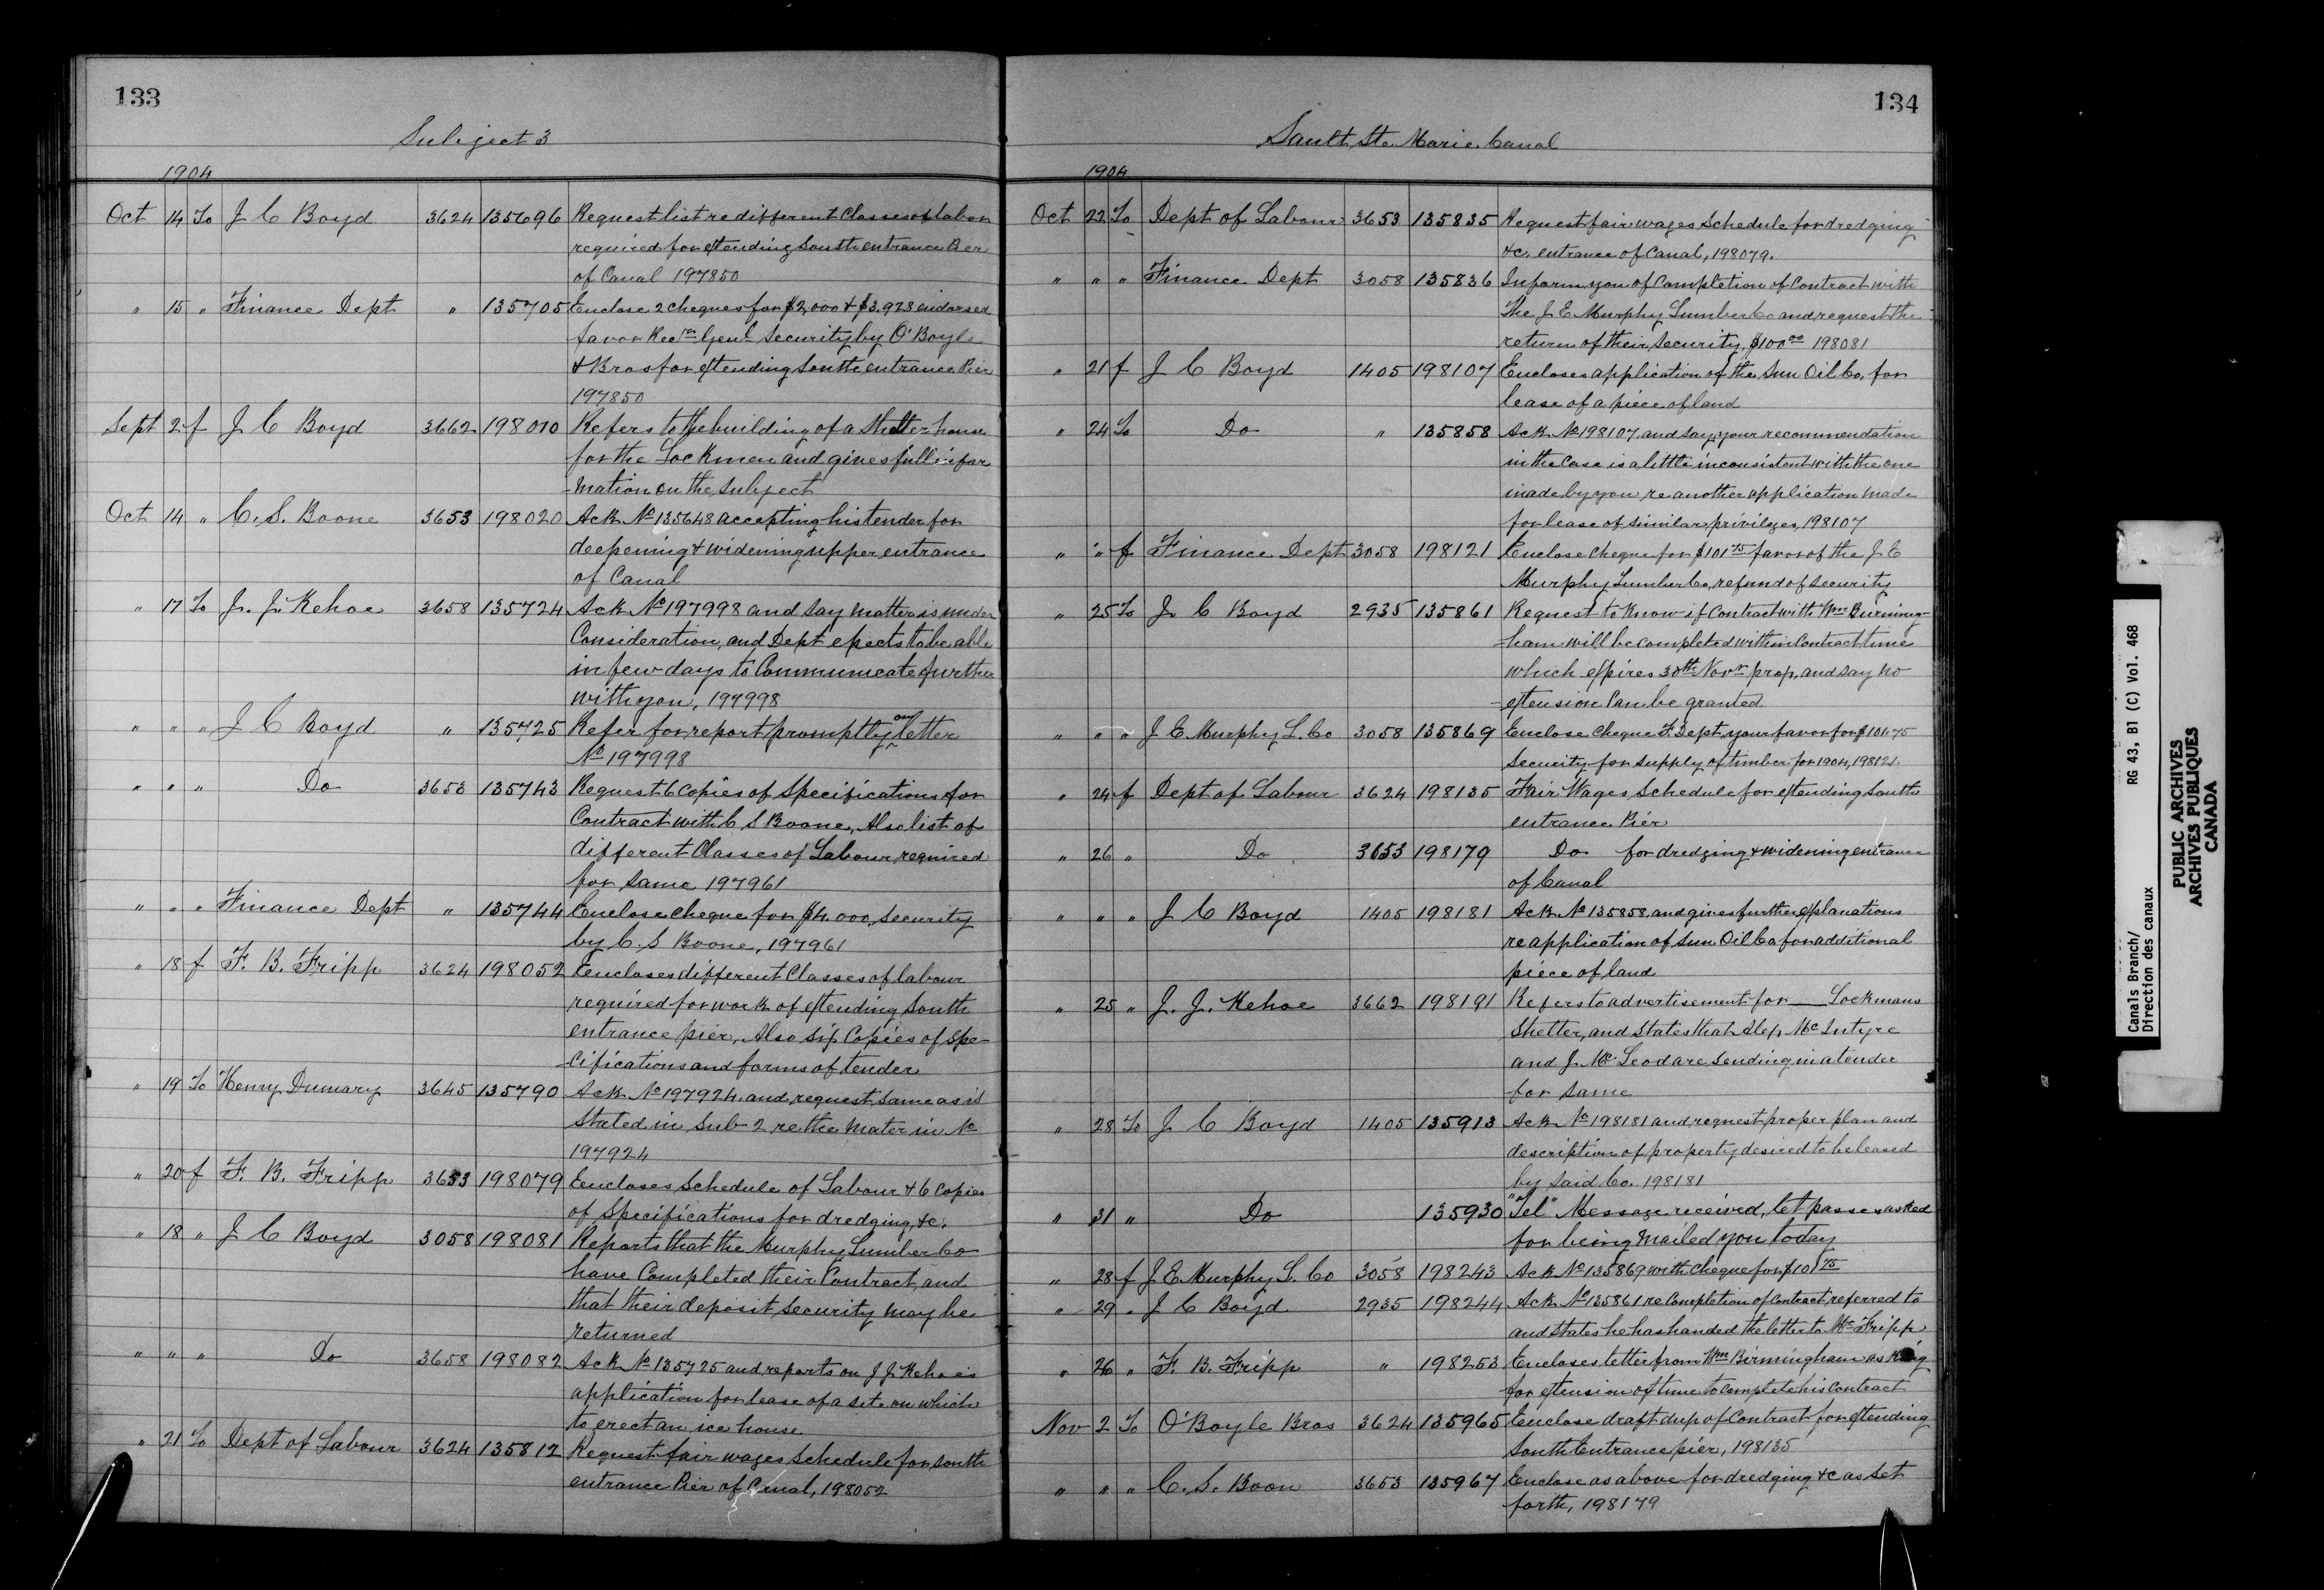 133
Subject 3
1904
Oct 14 To J C Boyd 3624 135696 Request list re different Classes of labor
required for extending South entrance Pier
of Canal 197850
" 15 " Finance Dept " 135705 Enclose 2 cheques for $2,000 & $3,928 endorsed
favor Recr Genl Security by O'Boyle
& Bros for extending South entrance Pier
197850
Sept 2 f J C Boyd 3662 198010 Refers to the building of a Shelter house
for the Lockmen and gives full infor
-mation on the Subject
Oct 14 " C. S. Boone 3653 198020 Ack No 135648 accepting his tender for
deepening & widening upper entrance
of Canal
" 17 To J. J. Kehoe 3658 135724 Ack No 197998 and say matter is under
Consideration, and Dept expects to be able
in few days to Communicate further
with you, 197998
" " " J C Boyd " 135725 Refer for report promptly on letter
No 197998
" " " Do 3653 135743 Request 6 Copies of Specifications for
Contract with C S Boone, Also list of
different Classes of Labour required
for same 197961
" " " Finance Dept " 135744 Enclose cheque for $4,000, Security
by C. S Boone, 197961
" 18 f F. B. Fripp 3624 198052 Encloses different Classes of labour
required for work of extending South
entrance pier, Also six Copies of Spe-
cifications and forms of tender
" 19 To Henry Dumary 3645 135790 Ack No 197924 and request same as is
Stated in Sub-2 re the mater in No
197924
" 20 f F. B. Fripp 3653 198079 Encloses Schedule of Labour & 6 Copies
of Specifications for dredging, &c.
" 18 " J C Boyd 3058 198081 Reports that the Murphy Lumber Co
have Completed their Contract, and
that their deposit Security may be
returned
" " " Do 3658 198082 Ack No 135725 and reports on J J Kehoe's
application for lease of a site on which
to erect an ice house
" 21 To Dept of Labour 3624 135812 Request fair wages schedule for South
entrance Pier of Canal, 198052
134
Sault Ste Marie Canal
1904
Oct 22 To Dept of Labour 3653 135835 Request fair wages Schedule for dredging
&c. entrance of Canal, 198079.
" " " Finance Dept 3058 135836 Inform you of Completion of Contract with
The J E Murphy Lumber Co and request the
return of their Security $100.00 198081
" 21 f J C Boyd 1405 198107 Encloses application of the Sun Oil Co, for
lease of a piece of land
" 24 To Do " 135858 Ack No 198107 and say your recommendation
in the Case is a little inconsistent with the one
made by you re another application made
for lease of similar privileges, 198107
" " f Finance Dept 3058 198121 Enclose Cheque for $101.75 favor of the J E
Murphy Lumber Co, refund of Security
" 25 To J. C Boyd 2935 135861 Request to know if Contract with Wm Burming-
-ham will be completed within Contract time
which expires 30th Novr prop, and say no
-extension Can be granted
" " " J E Murphy L. Co 3058 135869 Enclose Cheque F. Dept, your favor for $101.75
Security for supply of timber for 1904, 198121
" 24 f Dept of Labour 3624 198135 Fair Wages Schedule for extending South
entrance Pier
" 26 " Do 3653 198179 Do for dredging & widening entrance
of Canal
" " " J C Boyd 1405 198181 Ack No 135858 and gives further explanations
re application of Sun Oil Co for additional
piece of land
" 25 " J. J. Kehoe 3662 198191 Refers to advertisement for Lockmans
Shelter, and States that Alex. McIntyre
and J. McLeod are sending in a tender
for same
" 28 To J C Boyd 1405 135913 Ack No 198181 and request proper plan and
description of property desired to be leased
by said Co. 198181
" 31 " Do 135930 "Tel" Message received, let passes asked
for being mailed you today
" 28 f J E Murphy L. Co 3058 198243 Ack No 135869 with Cheque for $101.75
" 29 " J C Boyd 2935 198244 Ack No 135861 re Completion of Contract referred to
and States he has handed the letter to Mr Fripp
" 26 " F. B. Fripp " 198253 Encloses letter from Wm Birmingham asking
for extension of time to complete his contract
Nov 2 To O'Boyle Bros 3624 135965 Enclose draft dup of Contract for extending
South Entrance pier, 198135
" " " C. S. Boon 3653 135967 Enclose as above for dredging &c as set
forth, 198179
Canals Branch/ RG 43, B1 (C) Vol. 468
Direction des canaux
PUBLIC ARCHIVES
ARCHIVES PUBLIQUES
CANADA